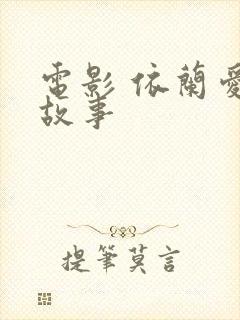 電影 依蘭愛
故事
提筆莫言